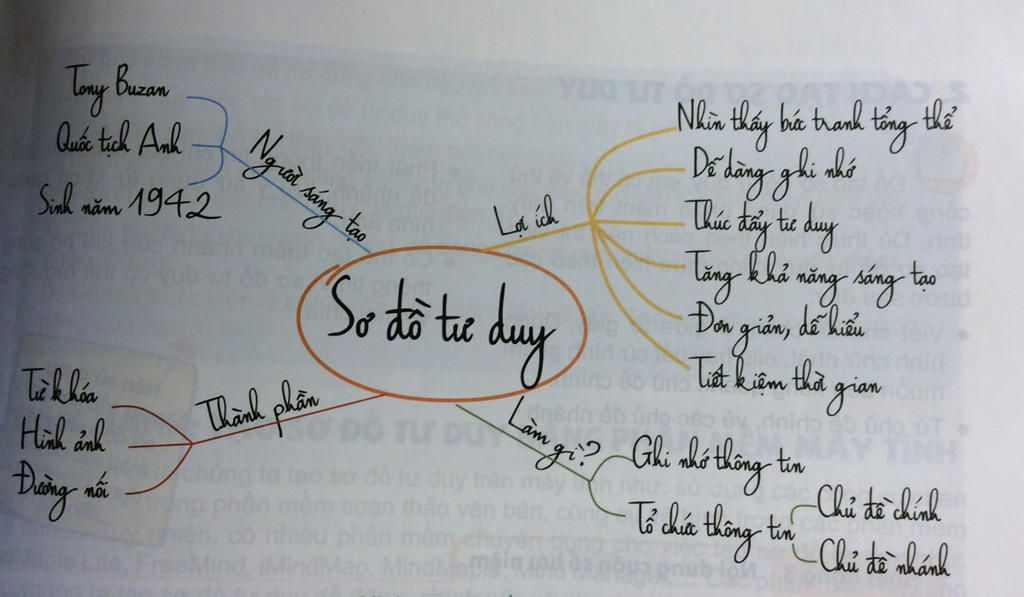 Sơ đồ tư duy
Người sáng tạo
Tony Buzan
Quốc tịch Anh
Sinh năm 1942
Lợi ích
Nhìn thấy bức tranh tổng thể
Dễ dàng ghi nhớ
Thúc đẩy tư duy
Tăng khả năng sáng tạo
Đơn giản, dễ hiểu
Tiết kiệm thời gian
Thành phần
Từ khóa
Hình ảnh
Đường nối
Làm gì?
Ghi nhớ thông tin
Tổ chức thông tin
Chủ đề chính
Chủ đề nhánh